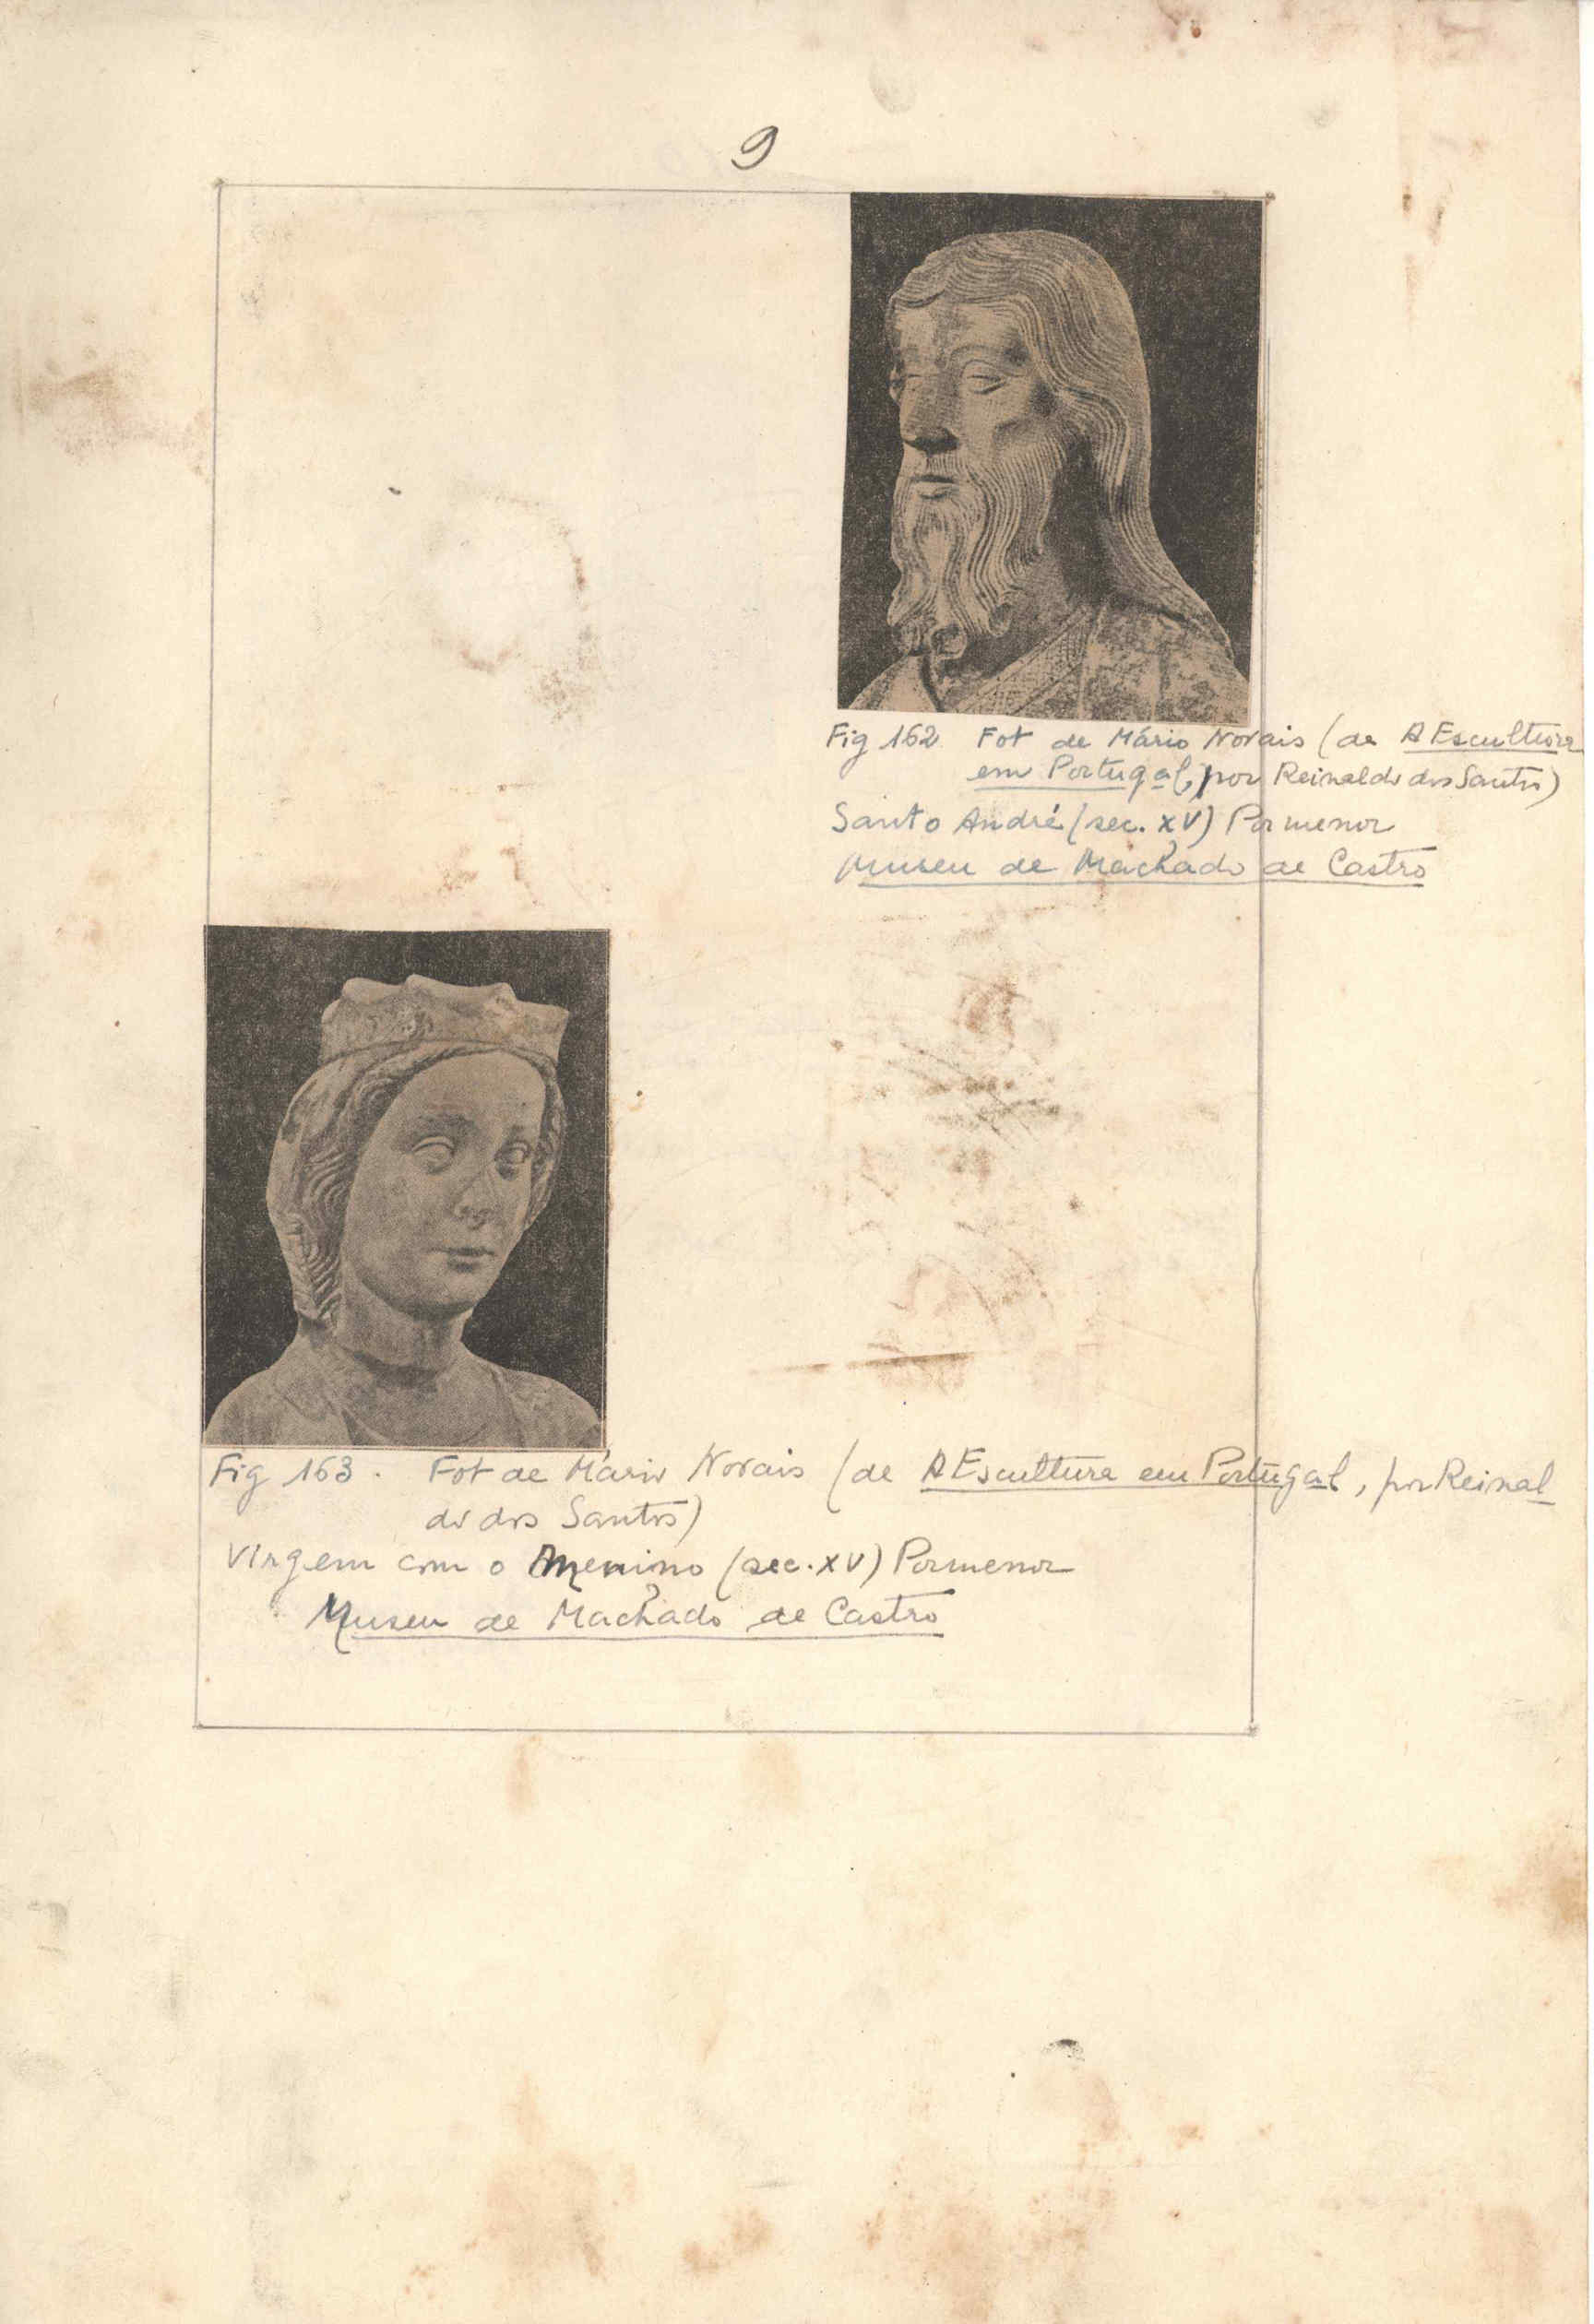 9
Fig 162 Fot de Mário Novais (de A Escultura
em Portugal, por Reinaldo dos Santos)
Santo André (sec. XV) Pormenor
Museu de Machado de Castro
Fig 163. Fot de Mário Novais (de A Escultura em Portugal, por Reinal
do dos Santos)
Virgem com o Menino (sec. XV) Pormenor
Museu de Machado de Castro